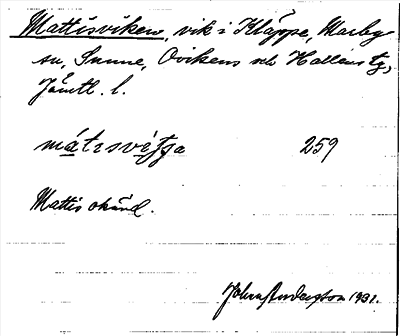 Mattisviken, vik i Kläppe, Marby
sn, Sunne, Ovikens och Hallens tg,
Jämtl. l.
mátɪsvíʃɟa 259
Mattis okänd.
John Andersson 1931.